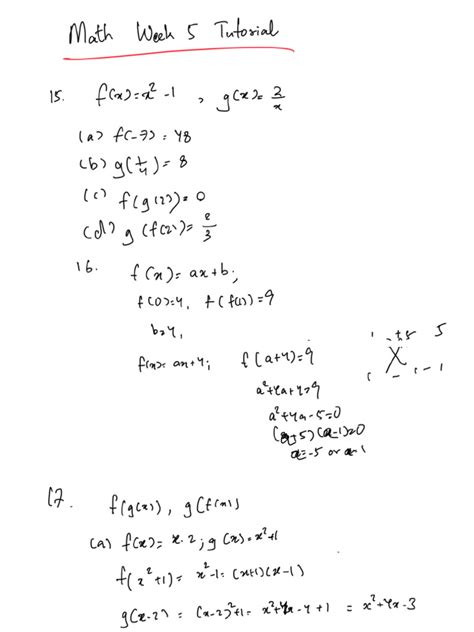 Math Week 5 Tutorial
15. f(x)=x²-1 , g(x)=2/x
(a) f(-7)=48
(b) g(1/4)=8
(c) f(g(2))=0
(d) g(f(2))=2/3
16. f(x)=ax+b;
f(0)=4, f(f(1))=9
b=4,
f(x)=ax+4; f(a+4)=9
a²+4a+4=9
a²+4a-5=0
(a+5)(a-1)=0
a=-5 or a=1
17. f(g(x)), g(f(x))
(a) f(x)=x-2; g(x)=x²+1
f(x²+1)=x²-1=(x+1)(x-1)
g(x-2)=(x-2)²+1=x²+4x-4+1=x²+4x-3